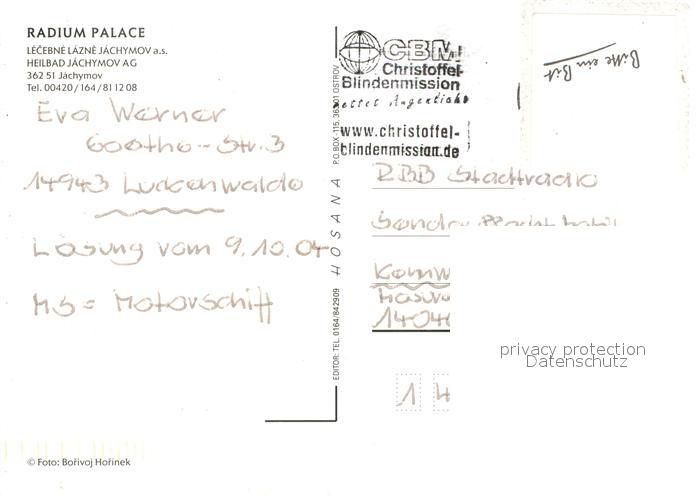 RADIUM PALACE
LÉČEBNÉ LÁZNĚ JÁCHYMOV a.s.
HEILBAD JÁCHYMOV AG
362 51 Jáchymov
Tel. 00420 / 164 / 81 12 08
Eva Werner
Goethe-Str. 3
14943 Luckenwalde
Lösung vom 9.10.04
MS = Motorschiff
© Foto: Bořivoj Hořínek
EDITOR: TEL. 0164/842909 HOSANA P.O.BOX 115, 363 01 OSTROV
CBM
Christoffel-
Blindenmission
rettet Augenlicht
www.christoffel-
blindenmission.de
Bitte ein Bit
RBB Stadtradio
Sender
Kennw
Masur
14046
1 4
privacy protection
Datenschutz